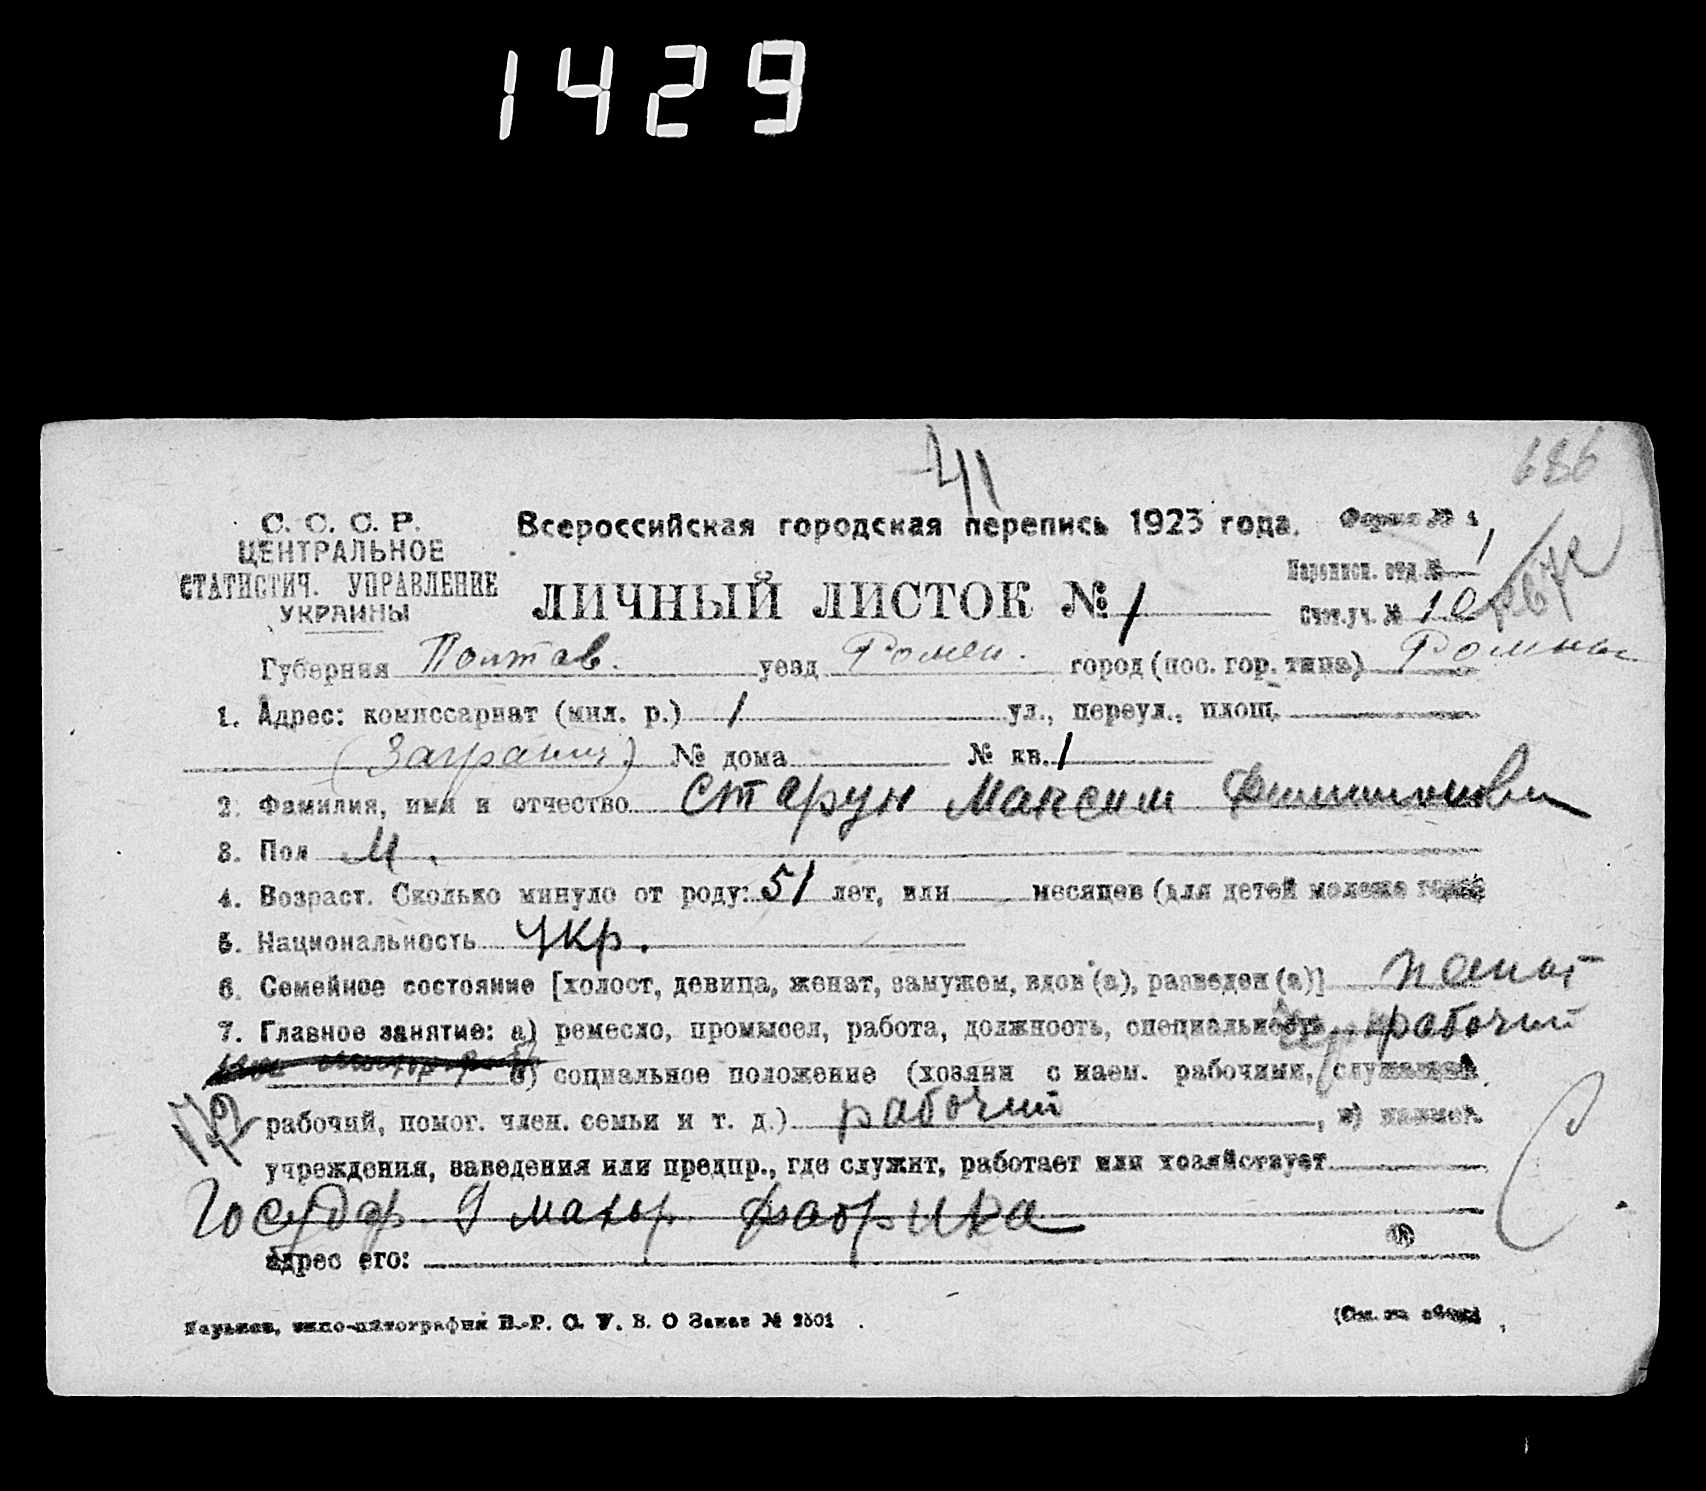 1429
41
686
С. С. С. Р.
ЦЕНТРАЛЬНОЕ
СТАТИСТИЧ. УПРАВЛЕНИЕ
УКРАИНЫ
Всероссийская городская перепись 1923 года.
Форма № 1
ЛИЧНЫЙ ЛИСТОК № 1
Переписн. отд. № 1
Счет. уч. № 10
Губерния Полтав. уезд Ромен. город (пос. гор. типа) Ромны
1. Адрес: комиссариат (мил. р.) 1 ул., переул., площ.
№ дома № кв. 1
2. Фамилия, имя и отчество Старун Максим
3. Пол М.
4. Возраст. Сколько минуло от роду: 51 лет, или месяцев (для детей моложе года)
5. Национальность Укр.
6. Семейное состояние [холост, девица, женат, замужем, вдов (а), разведен (а)] женат
7. Главное занятие: а) ремесло, промысел, работа, должность, специальность рабочий
б) социальное положение (хозяин с наем. рабочими, служащий
рабочий, помог. член. семьи и т. д.) рабочий, в) наимен.
учреждения, заведения или предпр., где служит, работает или хозяйствует
Государ. 9 махор. фабрика
адрес его:
Харьков, типо-литография В.-Р. С. У. В. О Заказ № 2501
(См. на обор.)